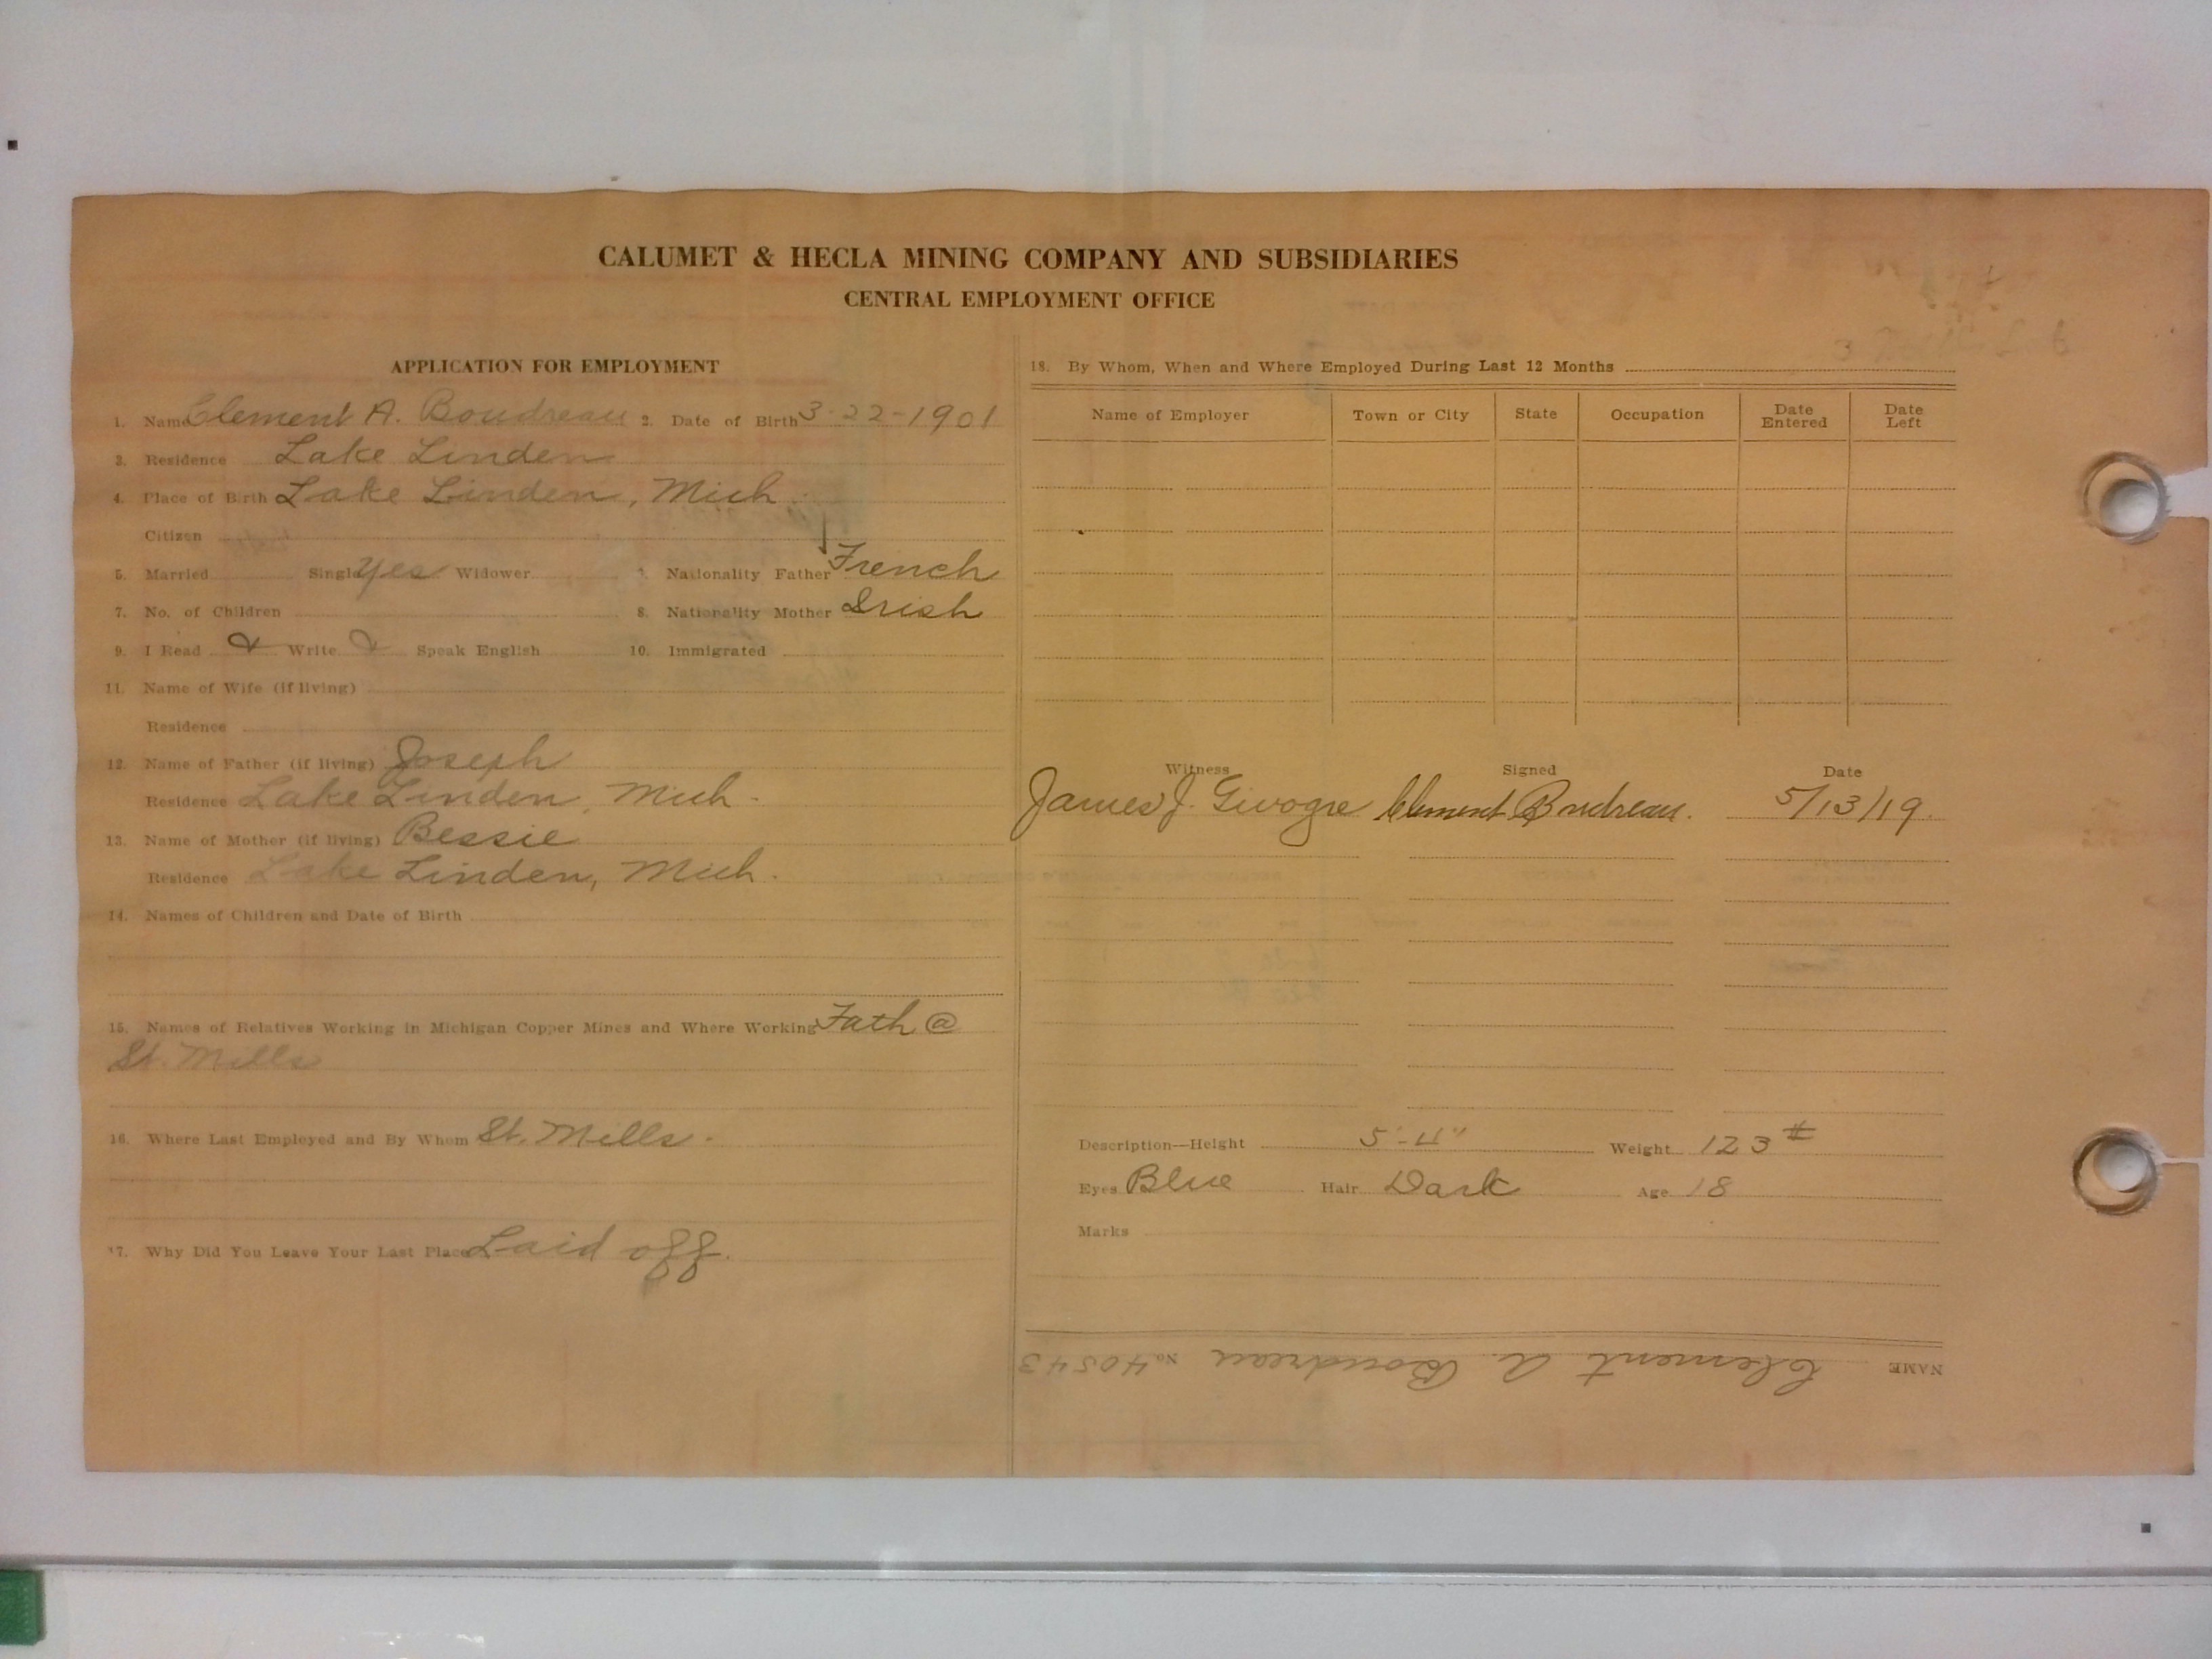 CALUMET & HECLA MINING COMPANY AND SUBSIDIARIES
CENTRAL EMPLOYMENT OFFICE
APPLICATION FOR EMPLOYMENT
1. Name Clement A. Boudreau 2. Date of Birth 3-22-1901
3. Residence Lake Linden
4. Place of Birth Lake Linden, Mich.
Citizen
5. Married Single Yes Widower Nationality Father French
7. No. of Children 8. Nationality Mother Irish
9. I Read Write Speak English 10. Immigrated
11. Name of Wife (if living)
Residence
12. Name of Father (if living) Joseph
Residence Lake Linden, Mich.
13. Name of Mother (if living) Bessie
Residence Lake Linden, Mich.
14. Names of Children and Date of Birth
15. Names of Relatives Working in Michigan Copper Mines and Where Working Fath @
St. Mills
16. Where Last Employed and By Whom St. Mills.
17. Why Did You Leave Your Last Place Laid off.
18. By Whom, When and Where Employed During Last 12 Months
Name of Employer Town or City State Occupation Date Entered Date Left
Witness Signed Date
James J. Clement Boudreau. 5/13/19.
Description—Height Weight 123 #
Eyes Blue Hair Dark Age 18
Marks
NAME Clement A. Boudreau No. 40543